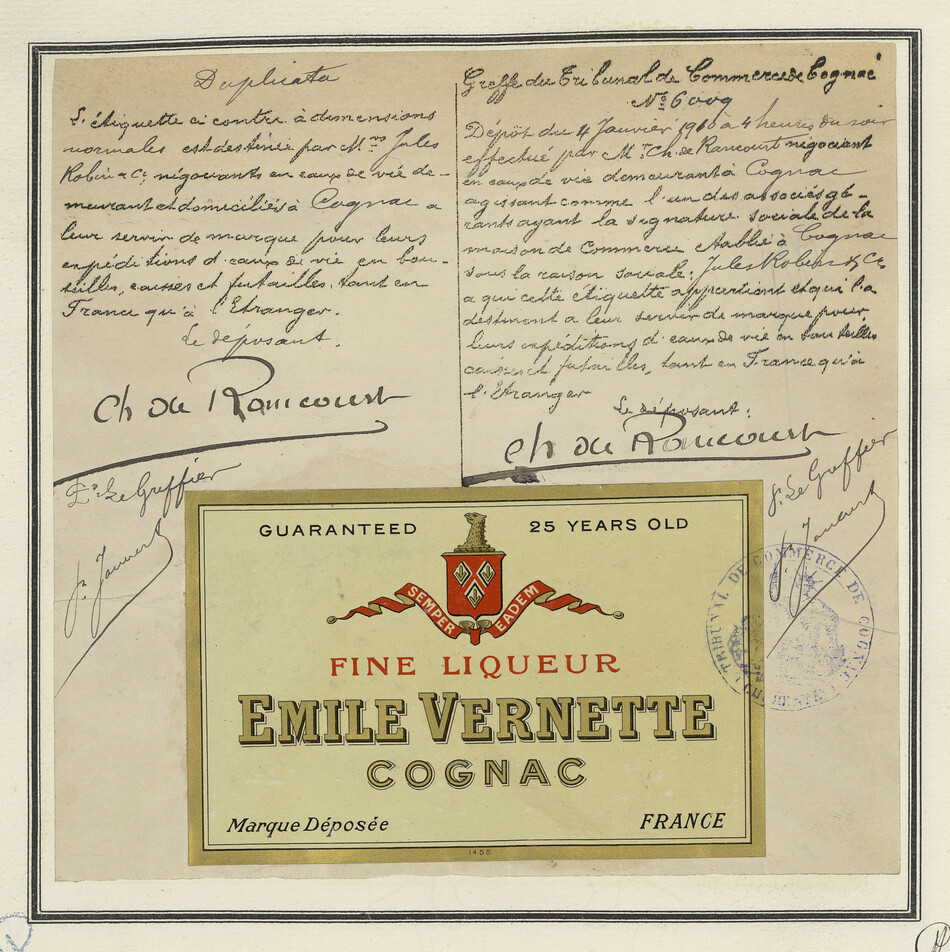 Duplicata
L'étiquette ci contre à dimensions
normales est destinée par Mrs Jules
Robin & Ce négociants en eaux de vie de-
meurant et domiciliés à Cognac a
leur servir de marque pour leurs
expéditions d'eaux de vie en bou-
teilles, caisses et futailles, tant en
France qu'à l'Etranger.
Le déposant.
Ch de Rancourt
Le Greffier
Greffe du Tribunal de Commerce de Cognac
No 6009
Dépôt du 4 Janvier 1910 à 4 heures du soir
effectué par Mr Ch. de Rancourt négociant
en eaux de vie demeurant à Cognac
agissant comme l'un des associés gé-
rants ayant la signature sociale de la
maison de Commerce établie à Cognac
sous la raison sociale: Jules Robin & Ce
a qui cette étiquette appartient et qui l'a
destinent a leur servir de marque pour
leurs expéditions d'eaux de vie en bouteilles
caisses et futailles, tant en France qu'à
l'Etranger
Le déposant:
Ch de Rancourt
Le Greffier
GUARANTEED 25 YEARS OLD
SEMPER EADEM
FINE LIQUEUR
EMILE VERNETTE
COGNAC
Marque Déposée FRANCE
1455
TRIBUNAL DE COMMERCE DE COGNAC